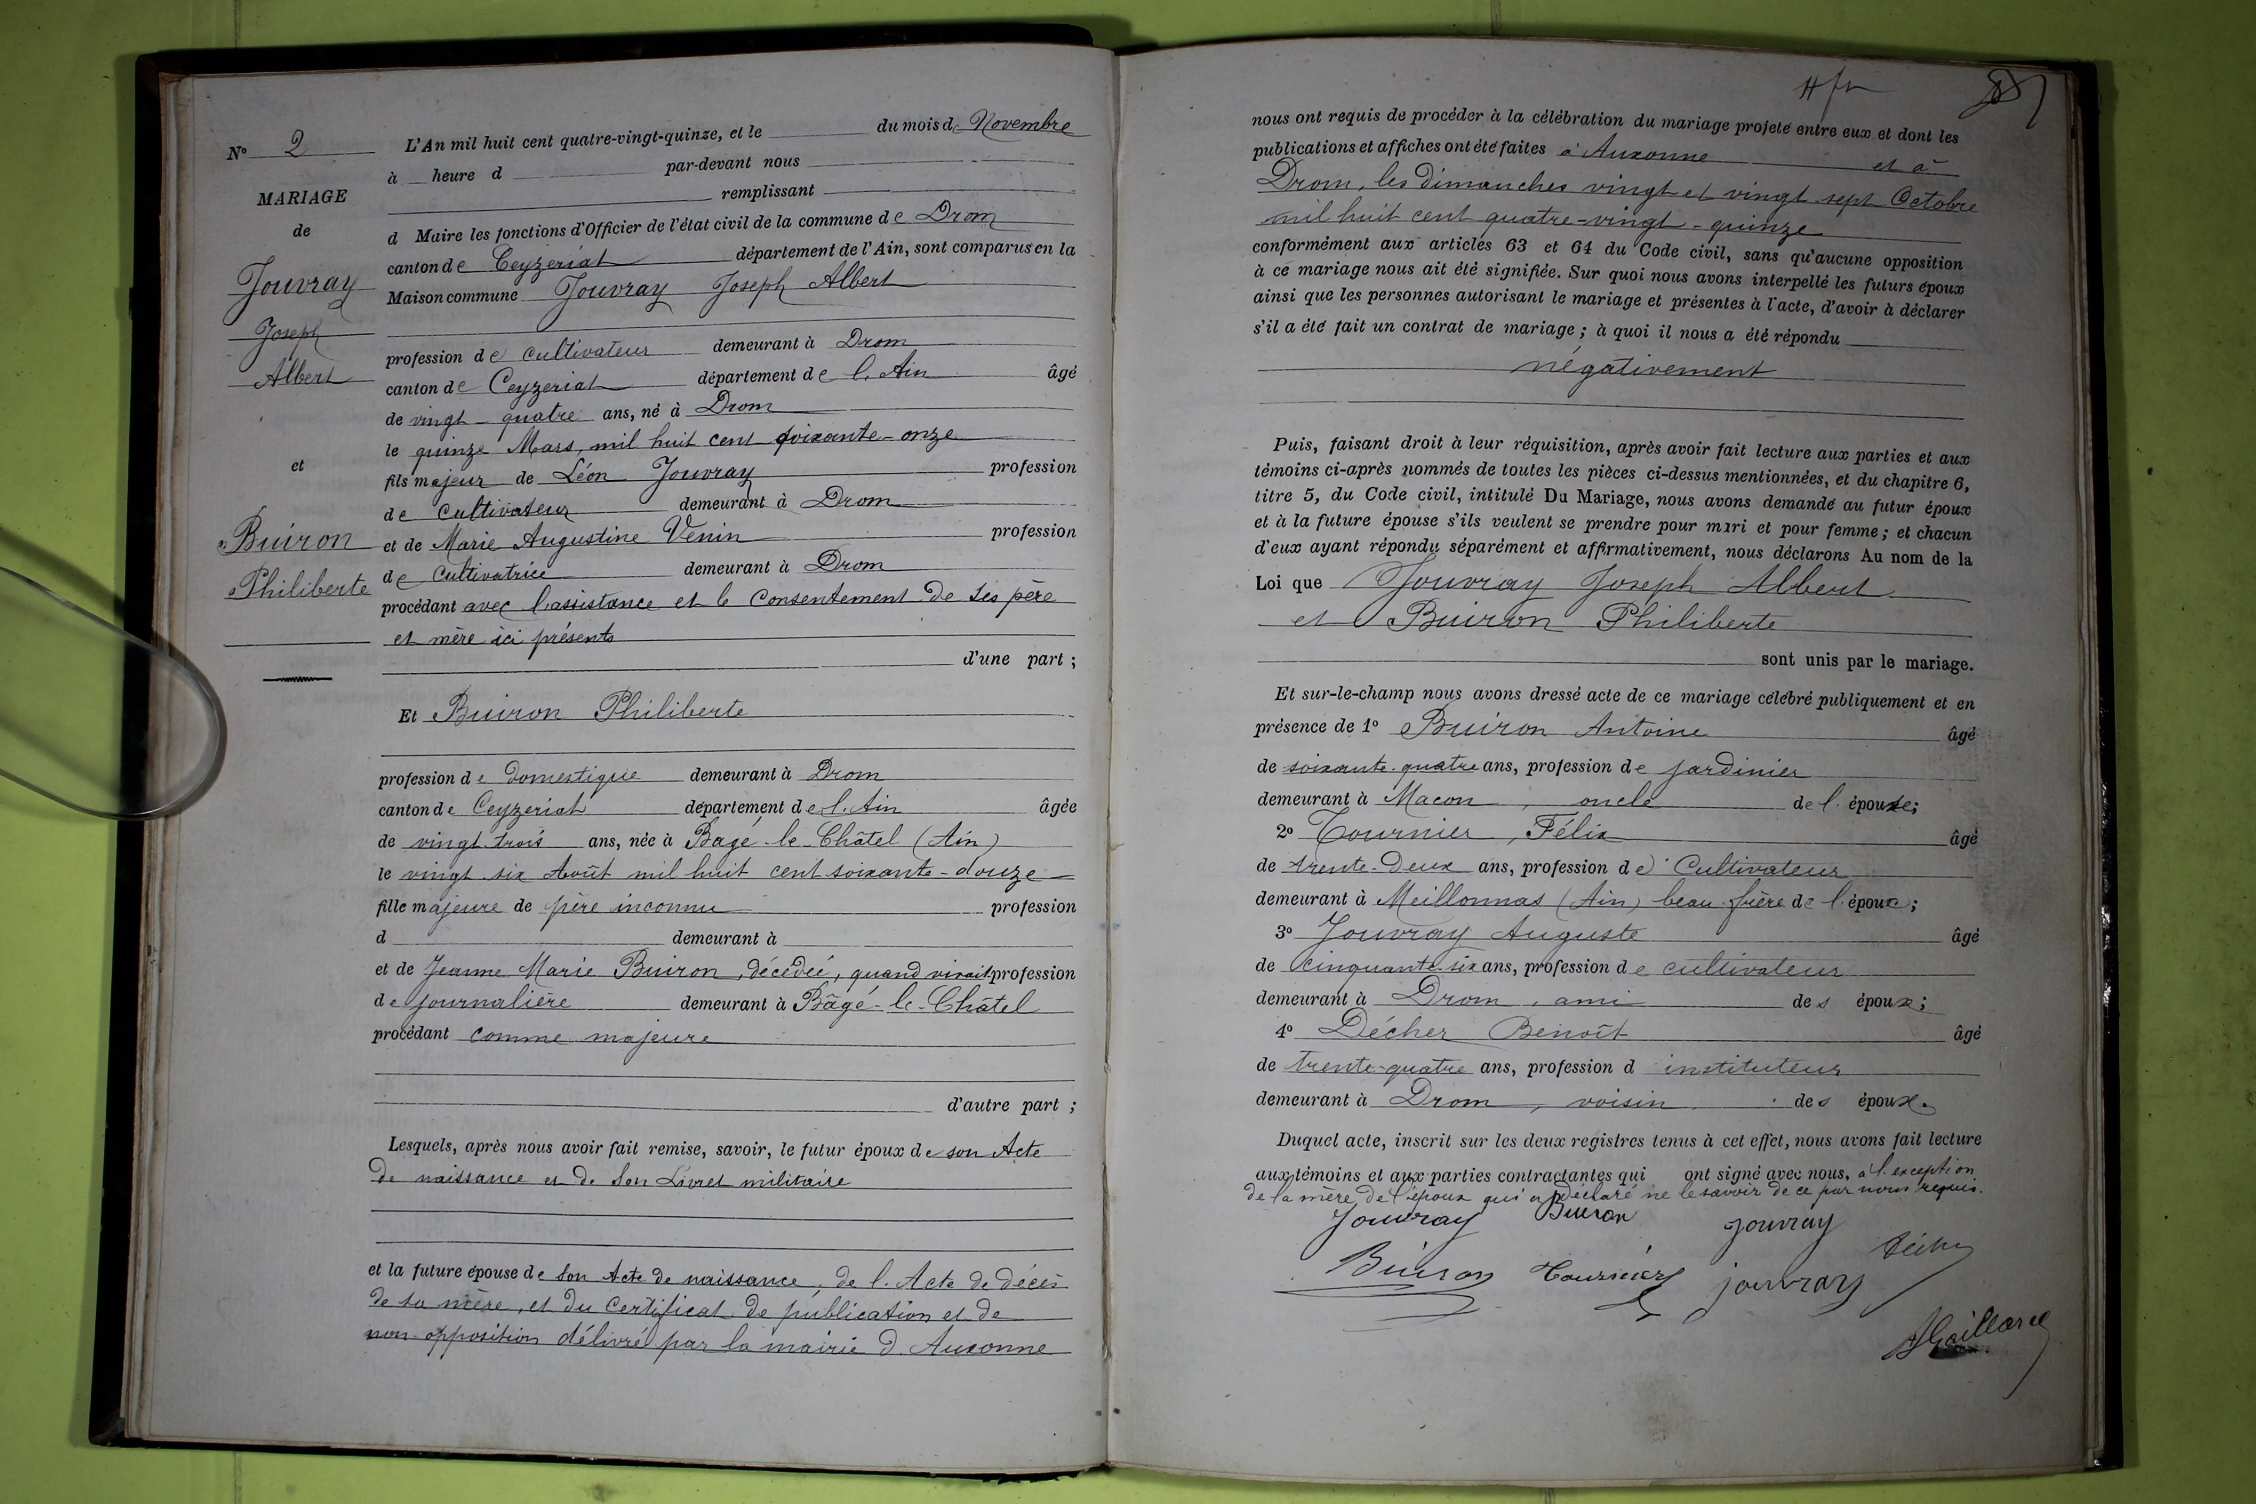 N° 2
MARIAGE
de
Jouvray
Joseph
Albert
et
Buiron
Philiberte
L'An mil huit cent quatre-vingt-quinze, et le du mois de Novembre
à heure d par-devant nous
remplissant
d Maire les fonctions d'Officier de l'état civil de la commune de Drom
canton de Ceyzériat département de l'Ain, sont comparus en la
Maison commune Jouvray Joseph Albert
profession de cultivateur demeurant à Drom
canton de Ceyzeriat département de l'Ain âgé
de vingt-quatre ans, né à Drom
le quinze Mars, mil huit cent soixante-onze
fils majeur de Léon Jouvray profession
de cultivateur demeurant à Drom
et de Marie Augustine Venin profession
de cultivatrice demeurant à Drom
procédant avec l'assistance et le consentement de ses père
et mère ici présents
d'une part ;
Et Buiron Philiberte
profession de domestique demeurant à Drom
canton de Ceyzeriat département de l'Ain âgée
de vingt-trois ans, née à Bagé-le-Châtel (Ain)
le vingt-six Août mil huit cent soixante-douze
fille majeure de père inconnu profession
d demeurant à
et de Jeanne Marie Buiron, décédée, quand vivait profession
de journalière demeurant à Bâgé-le-Châtel
procédant comme majeure
d'autre part ;
Lesquels, après nous avoir fait remise, savoir, le futur époux de son Acte
de naissance et de son Livret militaire
et la future épouse de son Acte de naissance, de l'Acte de décès
de sa mère, et du certificat de publication et de
non-opposition délivré par la mairie d'Auxonne
nous ont requis de procéder à la célébration du mariage projeté entre eux et dont les
publications et affiches ont été faites à Auxonne et à
Drom, les dimanches vingt et vingt-sept Octobre
mil huit cent quatre-vingt-quinze
conformément aux articles 63 et 64 du Code civil, sans qu'aucune opposition
à ce mariage nous ait été signifiée. Sur quoi nous avons interpellé les futurs époux
ainsi que les personnes autorisant le mariage et présentes à l'acte, d'avoir à déclarer
s'il a été fait un contrat de mariage ; à quoi il nous a été répondu
négativement
Puis, faisant droit à leur réquisition, après avoir fait lecture aux parties et aux
témoins ci-après nommés de toutes les pièces ci-dessus mentionnées, et du chapitre 6,
titre 5, du Code civil, intitulé Du Mariage, nous avons demandé au futur époux
et à la future épouse s'ils veulent se prendre pour mari et pour femme ; et chacun
d'eux ayant répondu séparément et affirmativement, nous déclarons Au nom de la
Loi que Jouvray Joseph Albert
et Buiron Philiberte
sont unis par le mariage.
Et sur-le-champ nous avons dressé acte de ce mariage célébré publiquement et en
présence de 1° Buiron Antoine âgé
de soixante-quatre ans, profession de jardinier
demeurant à Macon, oncle de l'épouse ;
2° Tournier, Félix âgé
de trente-deux ans, profession de Cultivateur
demeurant à Meillonnas (Ain) beau-frère de l'époux ;
3° Jouvray Auguste âgé
de cinquante-six ans, profession de cultivateur
demeurant à Drom, ami des époux ;
4° Décher Benoît âgé
de trente-quatre ans, profession d instituteur
demeurant à Drom, voisin des époux.
Duquel acte, inscrit sur les deux registres tenus à cet effet, nous avons fait lecture
aux témoins et aux parties contractantes qui ont signé avec nous, à l'exception
de la mère de l'époux qui a déclaré ne le savoir de ce par nous requis.
Jouvray Buiron Jouvray
Buiron Tournier jouvray Décher
Gaillard